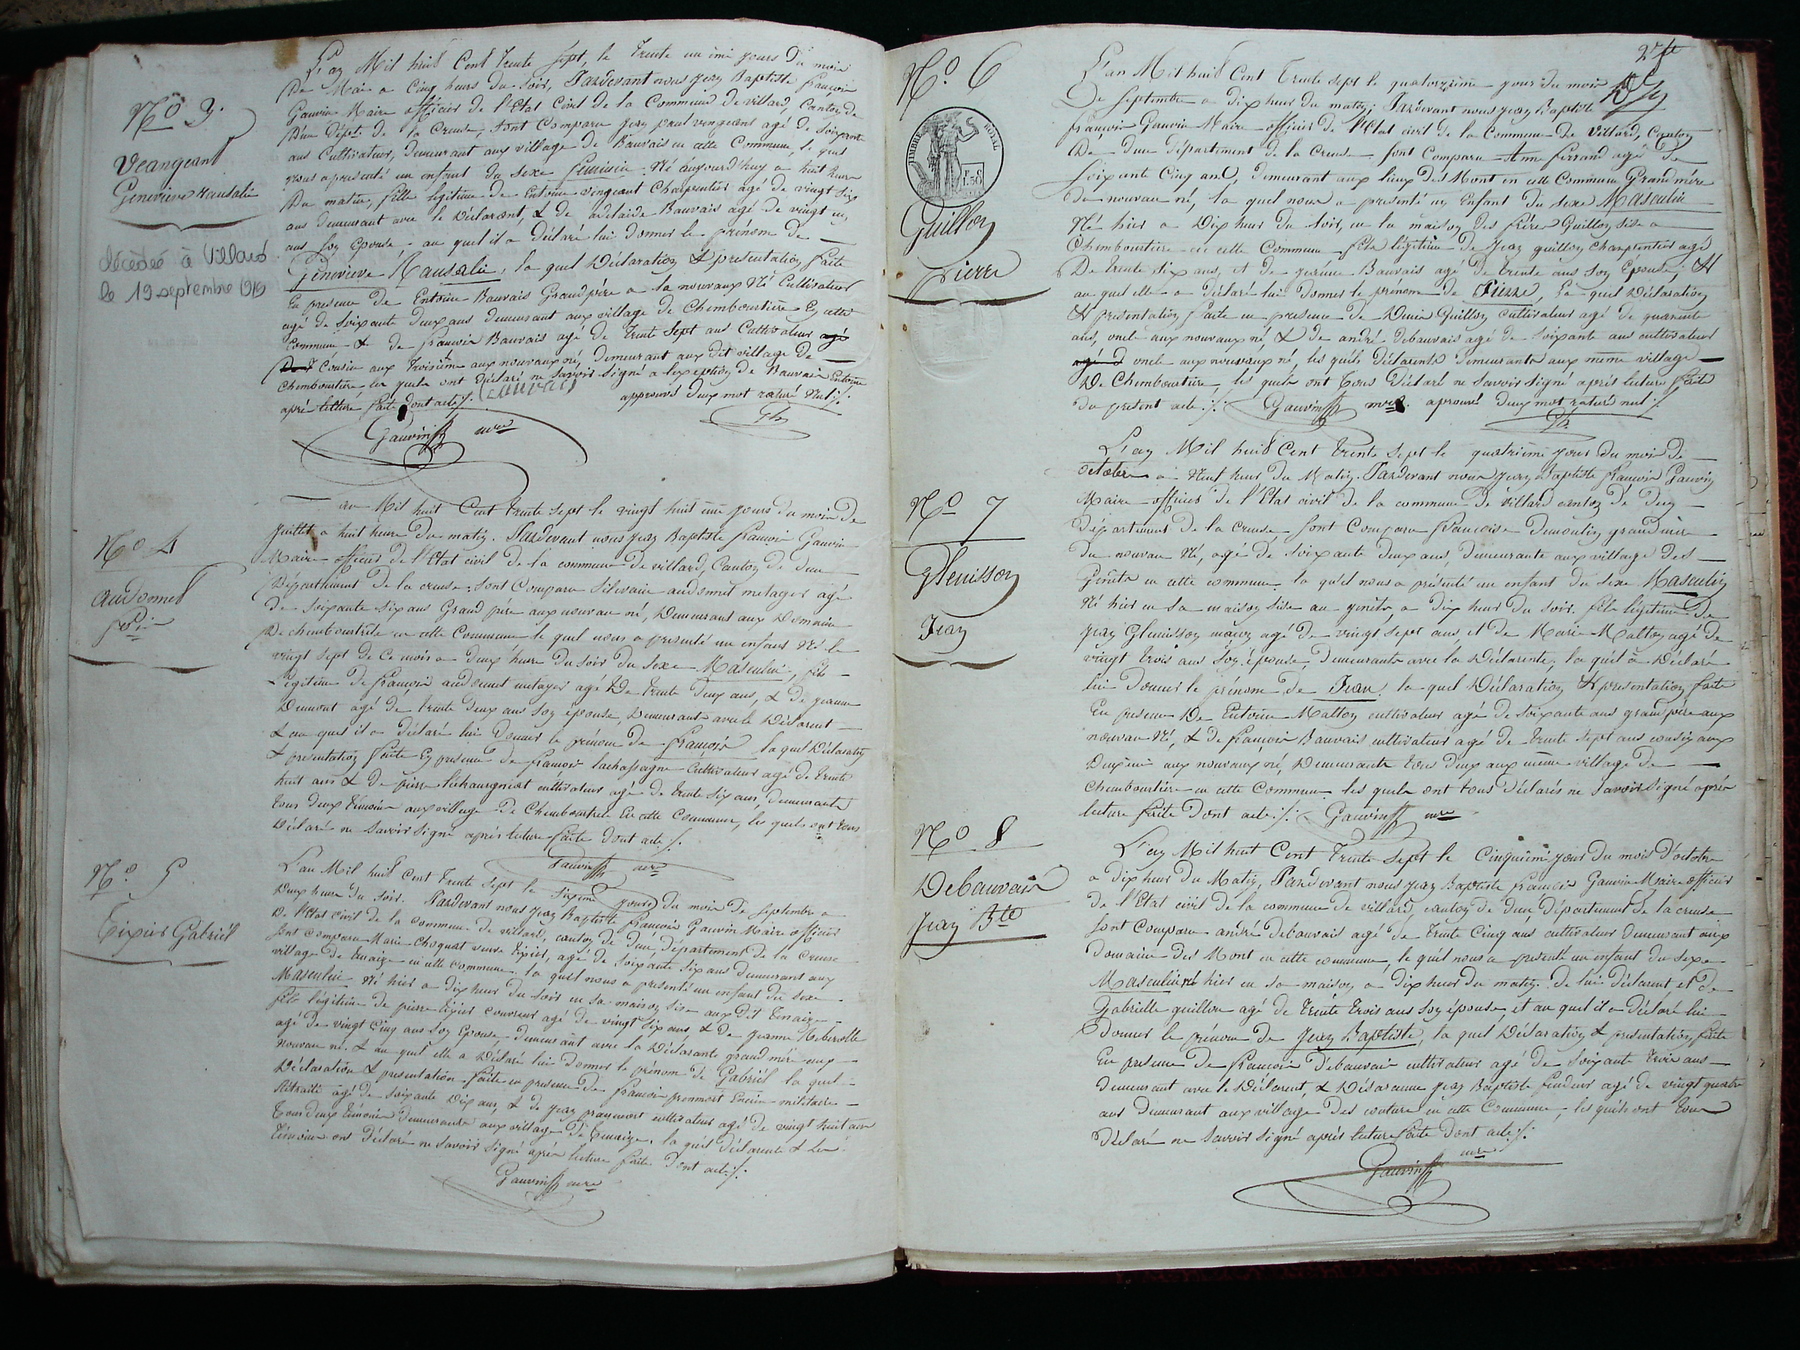 L'an Mil huit Cent trente sept, le trente un ime jours du mois
De Mai a Cinq heurs du Soir, Pardevant nous jean Baptiste françois
Gauvin Maire officier de l'Etat Civil de la Commune de villard, Canton de
Dun dépt de la Creuse, sont Comparu jean paul vingeant agé de soixante
ans Cultivateur, demeurant aux village de Bauvais en cette Commune, le quel
nous a presenté un enfant du sexe féminin Né aujourd'huy a huit heure
Du matin, fille légitime de Entoine vingeant Charpentier agé de vingt six
ans demeurant avec le Déclarent, & de adelaide Bauvais agé de vingt un
ans son Epouse au quel il a Déclaré lui donner le prénom de
Géneviève Rausalie, la quel Déclaration & présentation faite
En presence De Entoine Bauvais Grandpére a la nouveaux Né Cultivateur
agé de Soixante Deux ans demeurant aux village de Chimboutiere En cette
Commune & de francoin Bauvais agé de Trente Sept ans Cultivateur agé
Cousin aux Troisième aux nouveaux né, demeurant aux dit village de
Chimboutiere les quels ont Déclaré ne savoir Signé a l'exeption de Bauvais Entoine
aprés lecture faite Dont acte ./. Bauvais approuvé deux mot raturé Nul ./.
Gauvin mre
N° 3.
Veangeant
Geneviève Rausalie
décédée à Villard
le 19 septembre 1919
an Mil huit Cent trente sept le vingt huit ime jours du mois de
Juillet a huit heure du matin. Pardevant nous jean Baptiste françoin Gauvin
Maire officier de l'Etat civil de la commune de villard, Canton de dun
Département de la creuse, sont Comparu Silvain audonnet metayer agé
de Soixante Six ans Grand pére aux nouveau né, Demeurant aux Domaine
De chimboutiere en cette Commune le quel nous a presenté un enfant Né le
vingt sept de Ce mois a Deux heure du soir du sexe Masculin, fils
légitime de françoin audonnet metayer agé De trente Deux ans, & de jeanne
Demont agé de trente deux ans son épouse, Demeurant avec le Déclarent
& au quel il a déclaré lui Donner le prénom de francoin la quel Déclaration
& presentation faite En presence de francoin lachassagne Cultivateur agé de trente
huit ans & De pierre cultivateur agé de trente Six ans, demeurants
tous deux Témoins aux village De Chimboutiere En cette Commune, les quels ont tous
Déclaré ne Savoir Signé aprés lecture faite dont acte ./.
Gauvin mre
N° 4
audonnet
fçoin
L'an Mil huit Cent trente Sept le Sixime jours du mois de Septembre a
Deux heure du soir. Pardevant nous jean Baptiste francoin Gauvin Maire officier
De l'Etat civil de la commune de villard, canton de dun, département de la Creuse
Sont comparu Marie Choquat veuve Tixier, agé de soixante Six ans Demeurant aux
village de Tenaize en cette commune, la quel nous a presenté un enfant du sexe
Masculin Né hier a dix heur du Soir en sa maison Sise aux dit Tenaize
fils légitime de pierre tixier couvreur agé de vingt Six ans, & de jeanne
agé De vingt Cinq ans Son Epouse, demeurant avec la Déclarante grand mére aux
nouveau né. & au quel elle a Déclaré lui donner le prénom de Gabriel la quel
Déclaration & presentation faite en presence de francoin pronmort Encien militaire
Retraité agé de soixante Dix ans, & de jean pronmort cultivateur agé de vingt huit ans
Tous deux témoins Demeurants aux village de Tenaize, la quel Déclarente & les
témoins ont Déclaré ne Savoir Signé aprés lecture faite Dont acte ./.
Gauvin mre
N° 5
Tixier Gabriel
N° 6
TIMBRE ROYAL
Guillon
Pierre
L'an Mil huit Cent trente sept le quatorzième jour du mois
De Septembre a Dix heur du matin, Pardevant nous jean Baptiste
francoin Gauvin Maire officier de l'Etat civil de la Commune De Villard, Canton
De dun département de la Creuse, sont Comparu Anne ferrand agé de
Soixante Cinq ans, demeurant aux lieux des Mont en cette Commune Grand mére
Du nouveau né, la quel nous a presenté un Enfant du sexe Masculin
Né hier a Dix heur du Soir, en la maison des frére Guillon Sise a
Chimboutiere en cette Commune, fils légitime De jean guillon charpentier agé
De trente dix ans, et de jeanne Bauvais agé de trente ans son Epouse, &
au quel elle a déclaré lui Donner le prénom de Pierre, la quel Déclaration
& presentation faite en presence de Denis Guillon cultivateur agé de quarante
ans, oncle aux nouveaux né, & de andré debauvais agé de Soixante ans cultivateur
oncle aux nouveaux né, les quels Déclarents demeurants aux mème village
De Chimboutiere, les quels ont Tous Déclaré ne Savoir signé aprés lecture faite
du present acte ./. Gauvin mre aprouvé Deux mot raturé nul ./.
L'an Mil huit Cent trente sept le quatrième jour du mois de
octobre a Neuf heur du Matin. Pardevant nous jean Baptiste francoin Gauvin
Maire officier de l'Etat civil de la commune de villard canton de Dun
département de la creuse, sont Comparu francoise Demoulin grandmére
du nouveau Né, agé de Soixante deux ans, demeurante aux village des
Genéts en cette commune, la quel nous a présenté un enfant du sexe Masculin
Né hier en sa maison sise au genéts a Dix heur du soir. fils légitime de
jean Glenisson maçon agé de vingt sept ans, et de Marie Malton agé de
vingt trois ans Son épouse, Demeurants avec la Déclarente, la quel a Déclaré
lui Donner le prénom de Jean, la quel Déclaration & presentation faite
En presence De Entoine Malton cultivateur agé de Soixante ans grand pére aux
nouveau Né, & de francoin Bauvais cultivateur agé de trente sept ans cousin aux
Deuxime aux nouveaux né, Demeurants tous deux aux mème village de
Chimboutiere en cette Commune les quels ont tous déclarés ne Savoir Signé aprés
lecture faite Dont acte ./. Gauvin mre
N° 7
Glenisson
Jean
L'an Mil huit Cent trente sept le Cinquième jour du mois D'octobre
a dix heur du Matin, Pardevant nous jean Baptiste francoin Gauvin Maire officier
de l'Etat civil de la commune de villard, canton de dun, département de la creuse
sont comparu andré debauvais agé de trente Cinq ans cultivateur demeurant aux
domaine des Mont en cette commune, le quel nous a presenté un enfant du sexe
Masculin né hier en sa maison, a Dix heur du matin, de lui déclarent et de
Gabrielle guillon agé de trente trois ans son épouse, et au quel il a déclaré lui
donner le prénom de Jean Baptiste, la quel Déclaration & presentation faite
En presence de francoin Debauvais cultivateur agé de Soixante trois ans
Demeurant avec le Déclarent, & jean Baptiste agé de vingt quatre
ans Demeurant aux village des couture en cette Commune, les quels ont tous
Déclaré ne Savoir Signé aprés lecture faite Dont acte ./.
Gauvin mre
N° 8
Debauvais
Jean Bte